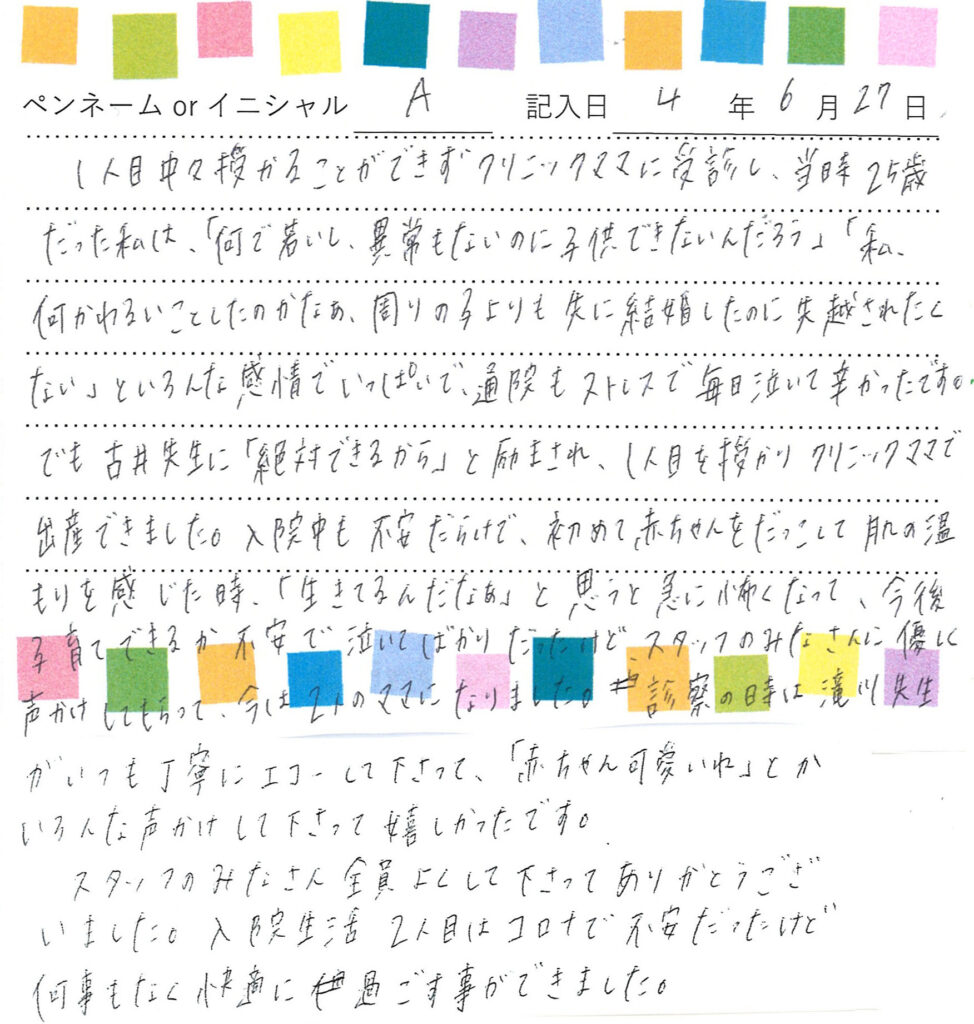 ペンネーム or イニシャル A 記入日 4 年 6 月 27 日
1人目中々授かることができずクリニックママに受診し、当時25歳
だった私は、「何で若いし、異常もないのに子供できないんだろう」「私、
何かわるいことしたのかなぁ、周りの子よりも先に結婚したのに先越されたく
ない」といろんな感情でいっぱいで、通院もストレスで毎日泣いて辛かったです。
でも古井先生に「絶対できるから」と励まされ、1人目を授かりクリニックママで
出産できました。入院中も不安だらけで、初めて赤ちゃんをだっこして肌の温
もりを感じた時、「生きてるんだなぁ」と思うと急に怖くなって、今後
子育てできるか不安で泣いてばかりだったけど、スタッフのみなさんに優しく
声かけしてもらって、今は2人のママになりました。診察の時は滝川先生
がいつも丁寧にエコーして下さって、「赤ちゃん可愛いね」とか
いろんな声かけして下さって嬉しかったです。
スタッフのみなさん全員よくして下さってありがとうござ
いました。入院生活2人目はコロナで不安だったけど
何事もなく快適に過ごす事ができました。